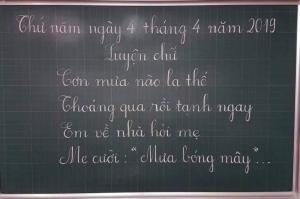 Thứ năm ngày 4 tháng 4 năm 2019
Luyện chữ
Cơn mưa nào lạ thế
Thoáng qua rồi tạnh ngay
Em về nhà hỏi mẹ
Mẹ cười : "Mưa bóng mây"...